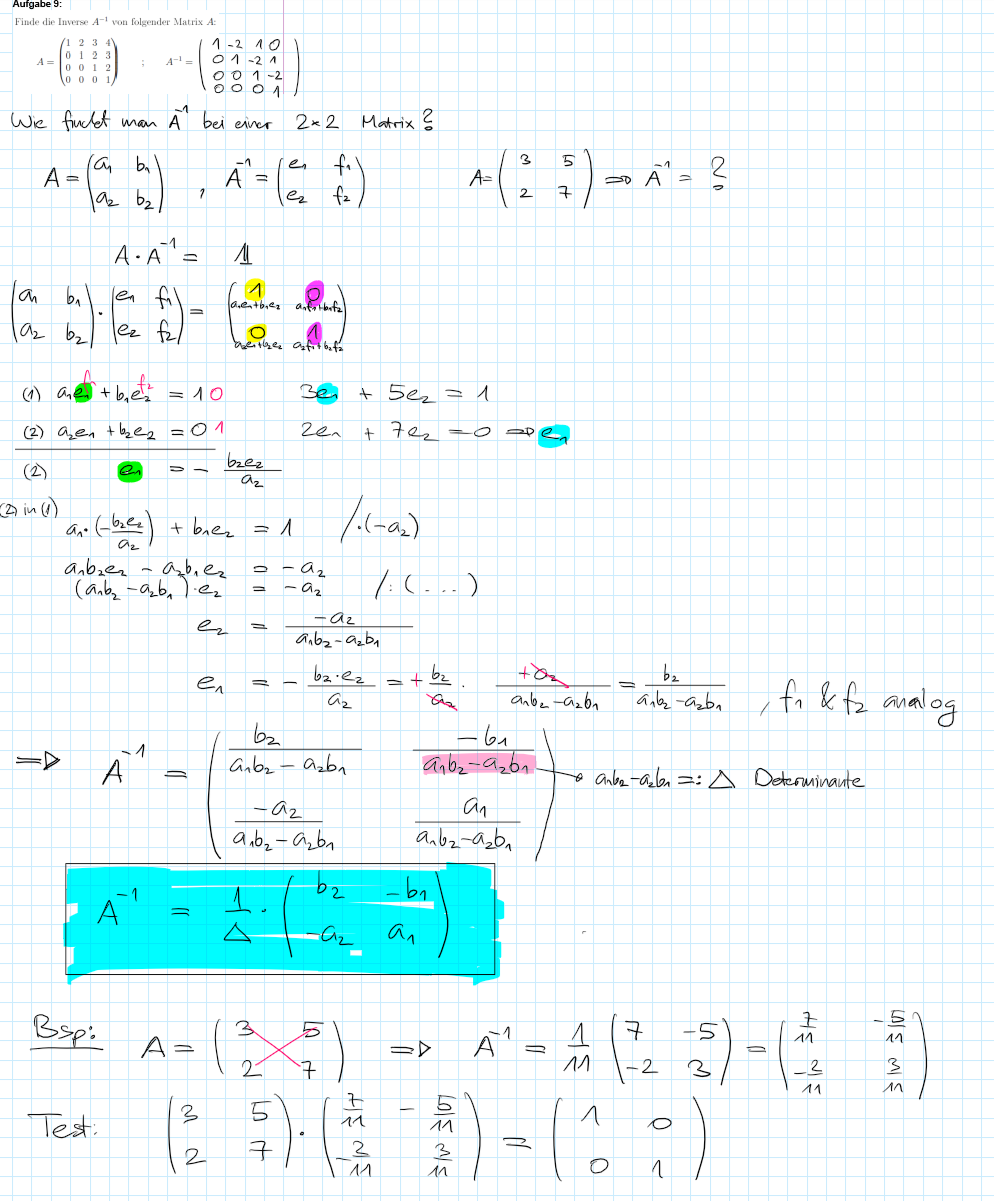 Aufgabe 9:
Finde die Inverse A⁻¹ von folgender Matrix A:
A = (1 2 3 4 ; 0 1 2 3 ; 0 0 1 2 ; 0 0 0 1) ; A⁻¹ = (1 -2 1 0 ; 0 1 -2 1 ; 0 0 1 -2 ; 0 0 0 1)
Wie findet man A⁻¹ bei einer 2×2 Matrix?
A = (a₁ b₁ ; a₂ b₂) , A⁻¹ = (e₁ f₁ ; e₂ f₂) A = (3 5 ; 2 7) ⇒ A⁻¹ = ?
A · A⁻¹ = 𝟙
(a₁ b₁ ; a₂ b₂) · (e₁ f₁ ; e₂ f₂) = (1 0 ; 0 1)
a₁e₁+b₁e₂ a₁f₁+b₁f₂
a₂e₁+b₂e₂ a₂f₁+b₂f₂
f₁ f₂
(1) a₁e₁ + b₁e₂ = 1 0 3e₁ + 5e₂ = 1
(2) a₂e₁ + b₂e₂ = 0 1 2e₁ + 7e₂ = 0 ⇒ e₁
(2) e₁ = - b₂e₂/a₂
(2) in (1) a₁·(-b₂e₂/a₂) + b₁e₂ = 1 /·(-a₂)
a₁b₂e₂ - a₂b₁e₂ = -a₂
(a₁b₂ - a₂b₁)·e₂ = -a₂ /:(...)
e₂ = -a₂/(a₁b₂-a₂b₁)
e₁ = - b₂·e₂/a₂ = + b₂/a₂ · +a₂/(a₁b₂-a₂b₁) = b₂/(a₁b₂-a₂b₁) , f₁ & f₂ analog
⇒ A⁻¹ = (b₂/(a₁b₂-a₂b₁) -b₁/(a₁b₂-a₂b₁) ; -a₂/(a₁b₂-a₂b₁) a₁/(a₁b₂-a₂b₁)) → a₁b₂-a₂b₁ =: △ Determinante
A⁻¹ = 1/△ · (b₂ -b₁ ; -a₂ a₁)
Bsp: A = (3 5 ; 2 7) ⇒ A⁻¹ = 1/11 (7 -5 ; -2 3) = (7/11 -5/11 ; -2/11 3/11)
Test: (3 5 ; 2 7) · (7/11 -5/11 ; -2/11 3/11) = (1 0 ; 0 1)